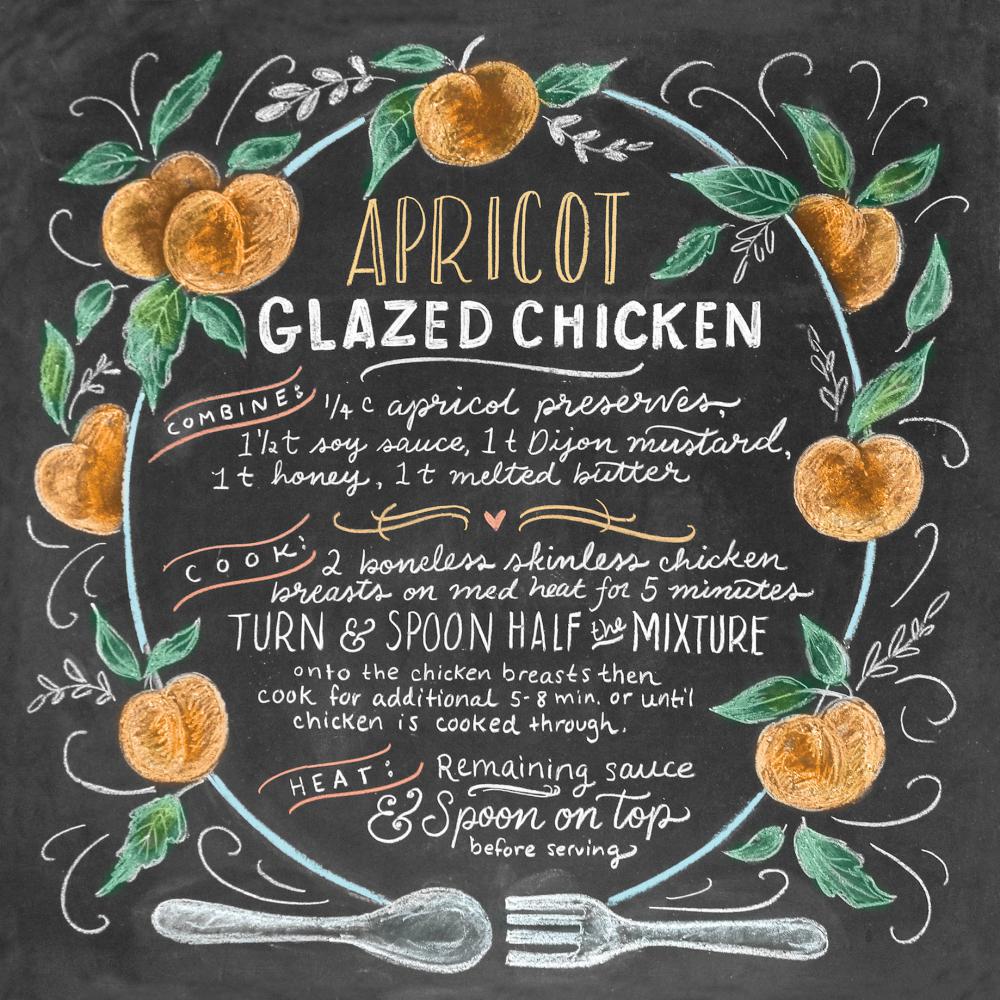 APRICOT
GLAZED CHICKEN
COMBINE: 1/4 c apricot preserves,
1 1/2 t soy sauce, 1 t Dijon mustard,
1 t honey, 1 t melted butter
COOK: 2 boneless skinless chicken
breasts on med heat for 5 minutes
TURN & SPOON HALF the MIXTURE
onto the chicken breasts then
cook for additional 5-8 min. or until
chicken is cooked through.
HEAT: Remaining sauce
& Spoon on top
before serving